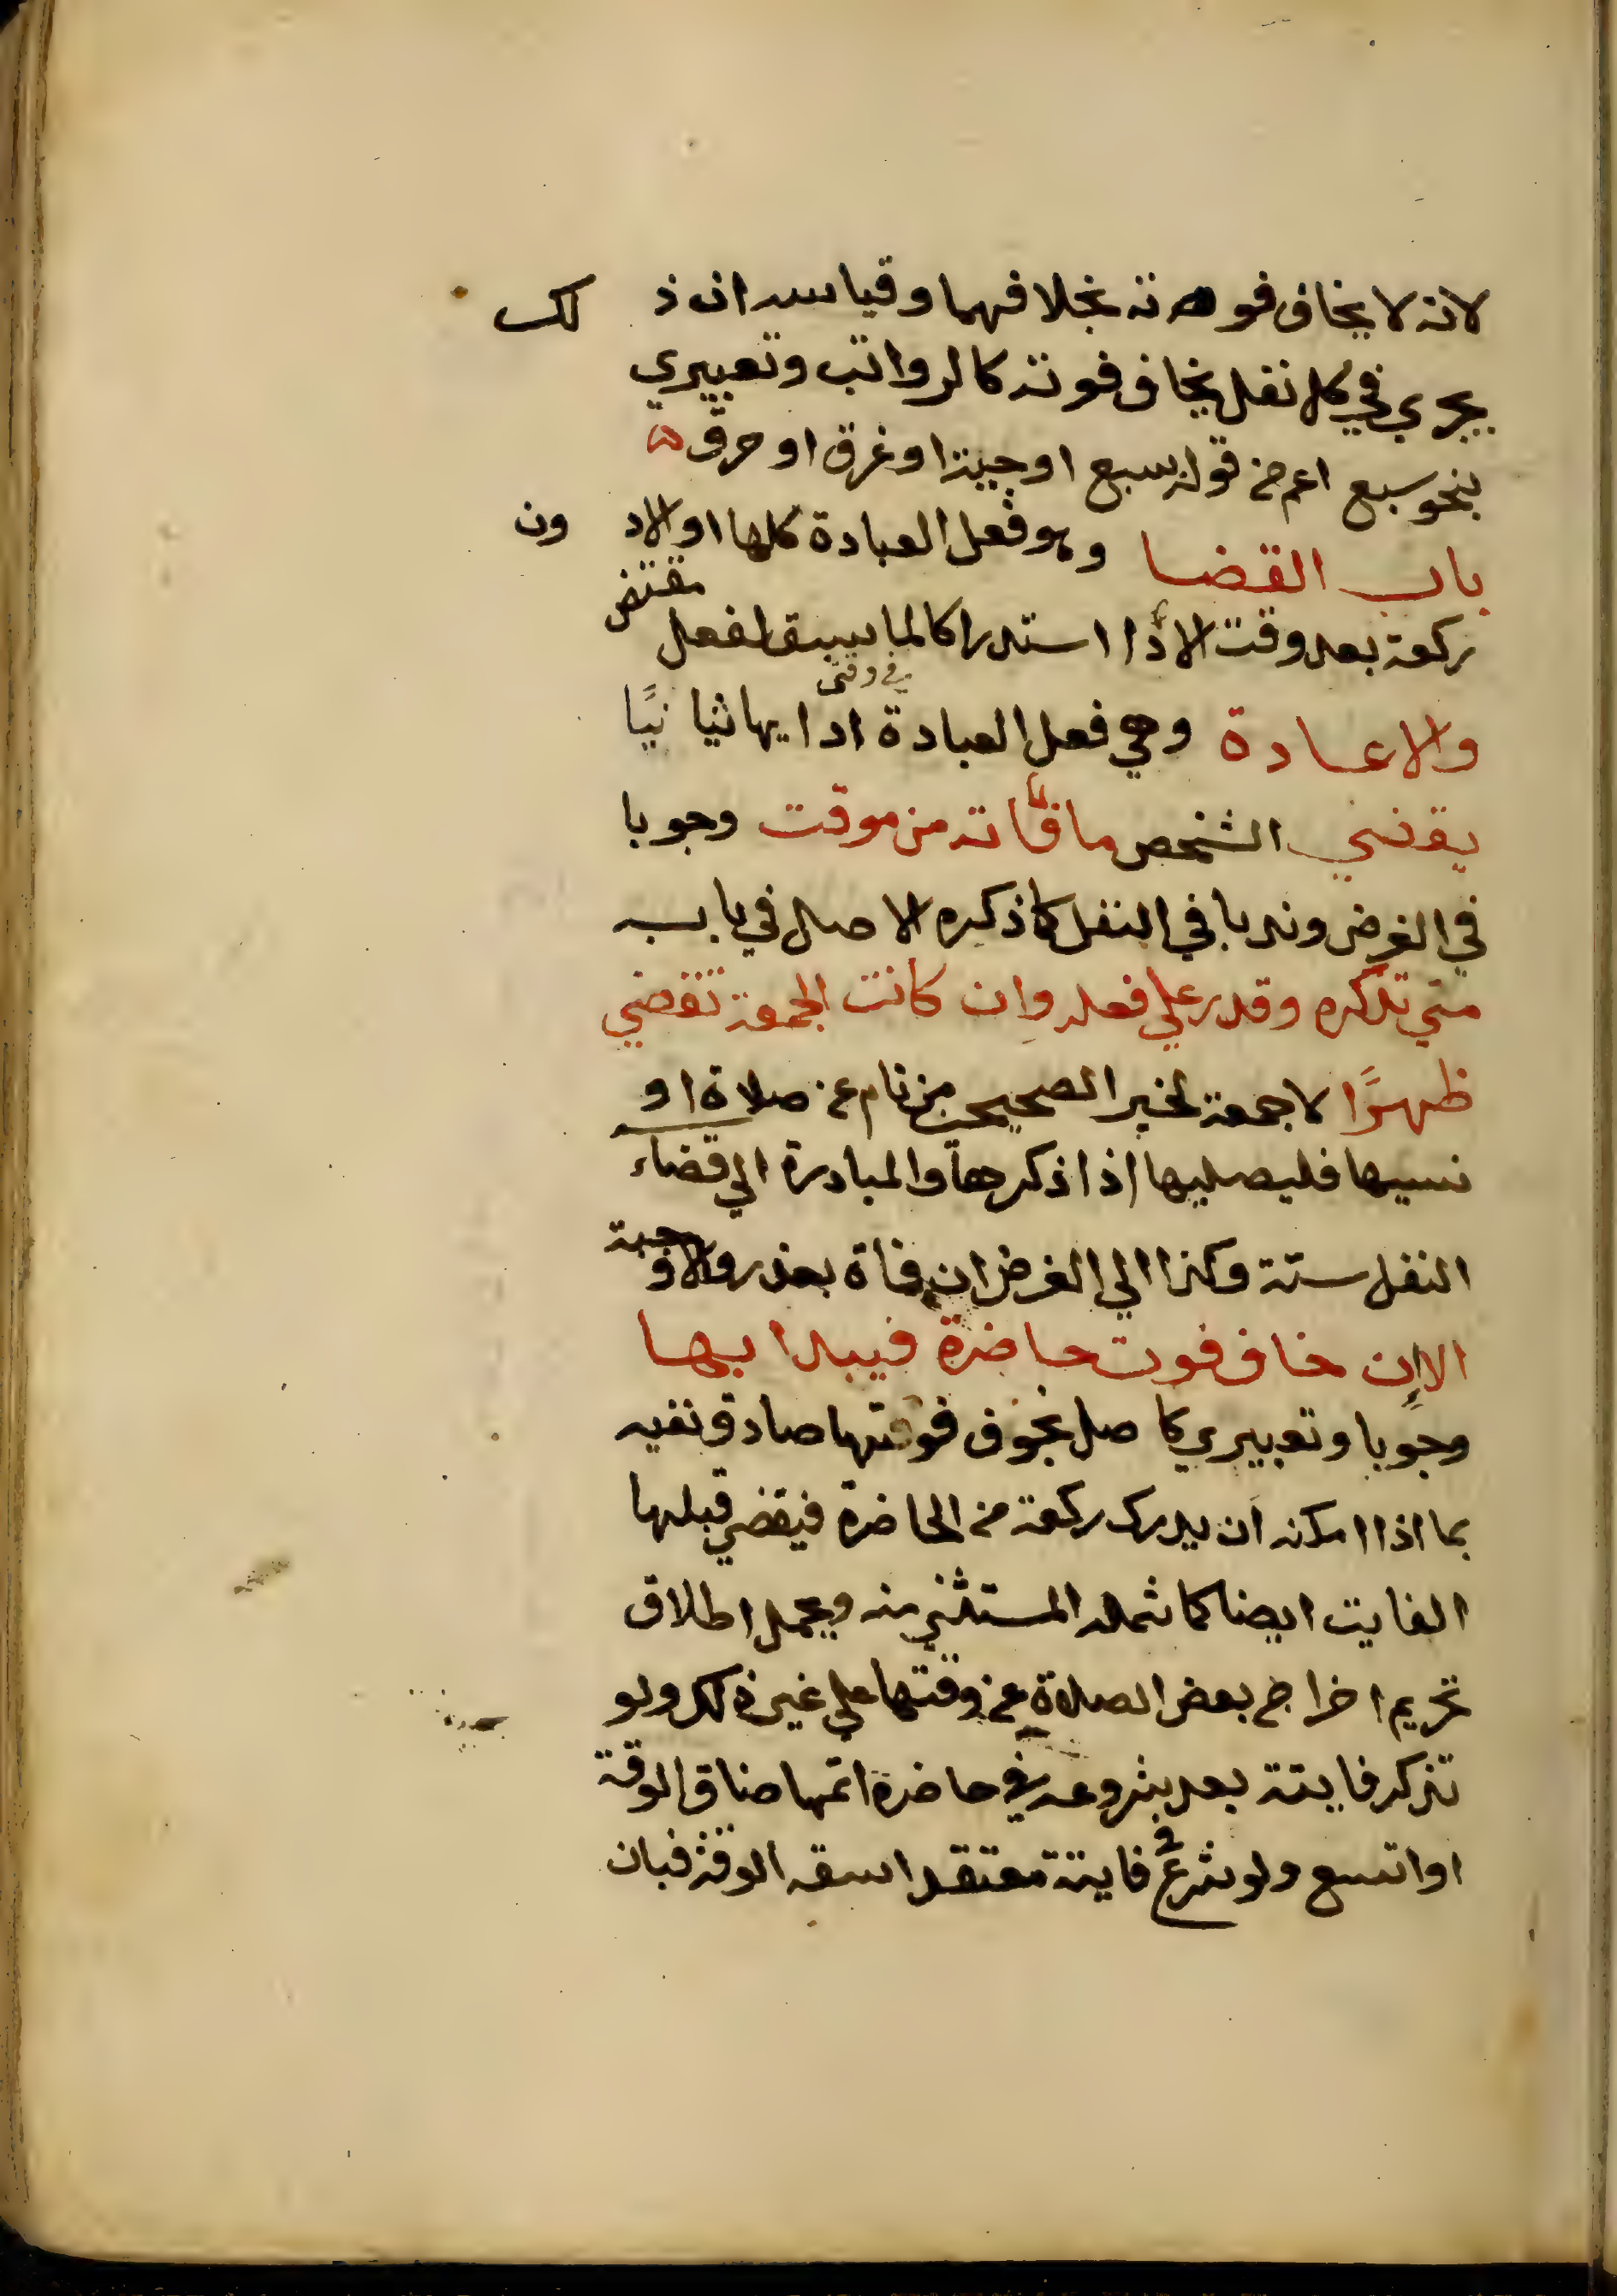 لانه لا يخاف فوته بخلافهما وقياسه ان ذ لك
يجري في كل نفل يخاف فوته كالرواتب وتعبيري
بنحو سبع اعم من قوله سبع او حية او غرق او حرق ه
باب القضا وهو فعل العبادة كلها او الا د ون
ركعة بعد وقت الادا استدراكا لما سبق لفعل مقتض
والاعادة وهي فعل العبادة في وقت ادايها ثنيا نيًا
يقضي الشخص ما فاته من موقت وجوبا
في الفرض وندبا في النفل كما ذكره الاصل في باب
متي تذكره وقدر علي فعله وان كانت الجمعة تقضي
ظهرًا لا جمعة لخبر الصحيحين من نام عن صلاة او
نسيها فليصليها اذا ذكرها والمبادرة الي قضاء
النفل سنة وكذا الي الفرض ان فاة بعذر والا وجبة
الا إن خاف فوت حاضرة فيبدا بها
وجوبا وتعبيري كاصل بخوف فوتها صادق نفيه
بما اذا امكنه ان يدرك ركعة من الحاضرة فيقضي قبلها
الفايت ايضا كما شمله المستثني منه ويحمل اطلاق
تحريم اخراج بعض الصلاة عن وقتها علي غير ذلك ولو
تذكر فايتة بعد شروعه في حاضرة اتمها ضاق الوقة
او اتسع ولو شرع في فايتة معتقدا سعة الوقة فبان